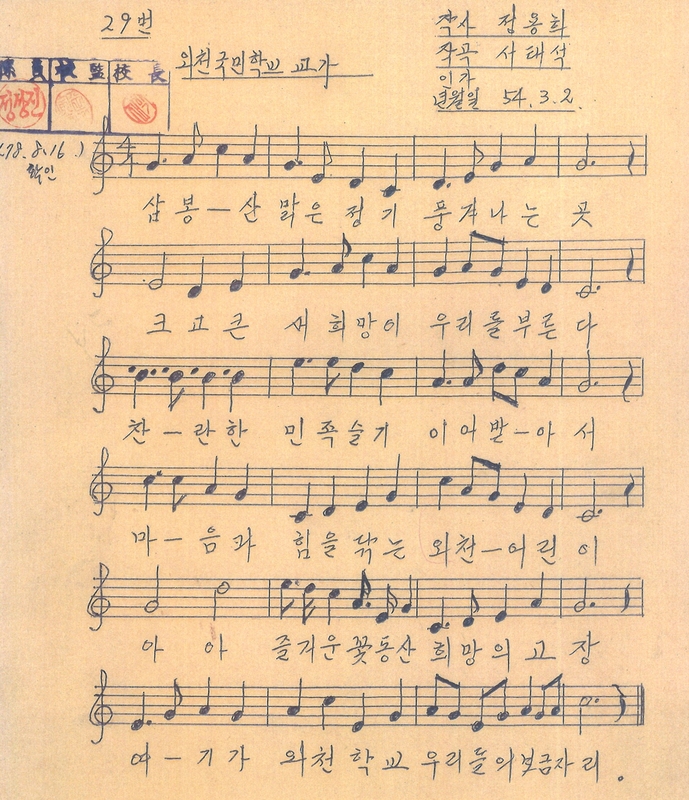 29번
작사 정용희
작곡 서태석
인가
년월일 54.3.2.
외천국민학교 교가
係員 校監 校長
(78.8.16.)
확인
삼봉－산 맑은 정기 풍겨나는 곳
크고큰 새희망이 우리를부른다
찬－란한 민족슬기 이어받－아서
마－음과 힘을닦는 외천－어린이
아 아 즐거운꽃동산 희망의고장
여－기가 외천학교 우리들의보금자리.